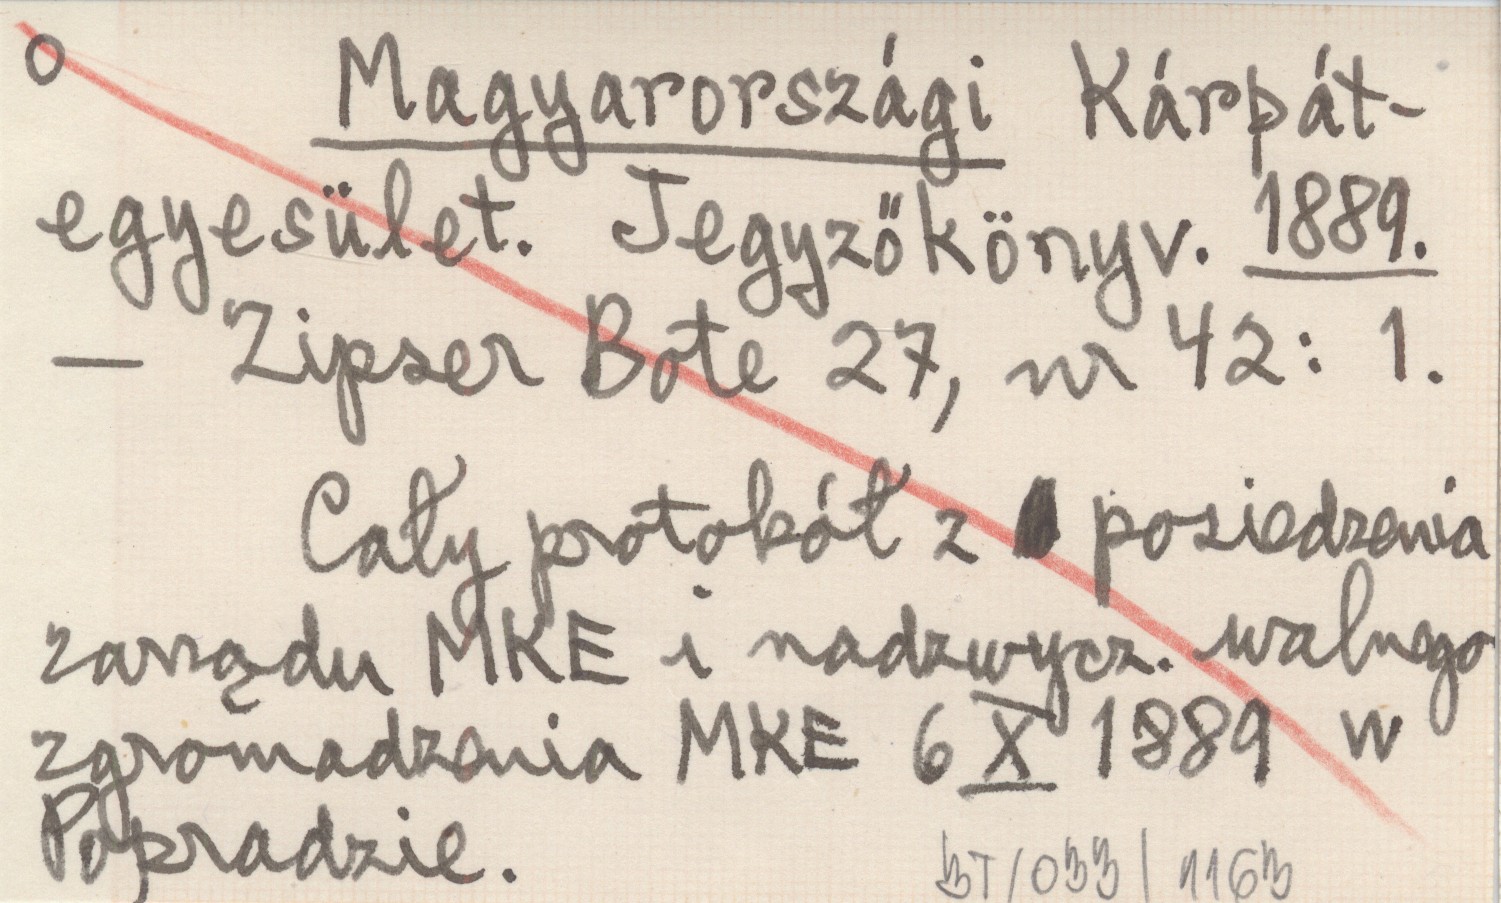 o Magyarországi Kárpát-
egyesület. Jegyzőkönyv. 1889.
— Zipser Bote 27, nr 42: 1.
Cały protokół z posiedzenia
zarządu MKE i nadzwycz. walnego
zgromadzenia MKE 6 X 1889 w
Popradzie.
BT/033/1163